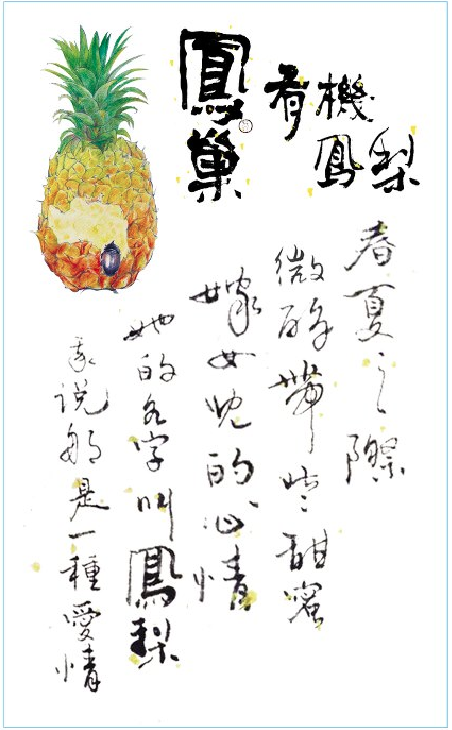 鳳巢
有機
鳳梨
春夏之際
微酸帶些甜蜜
嫁女兒的心情
她的名字叫鳳梨
我說那是一種愛情